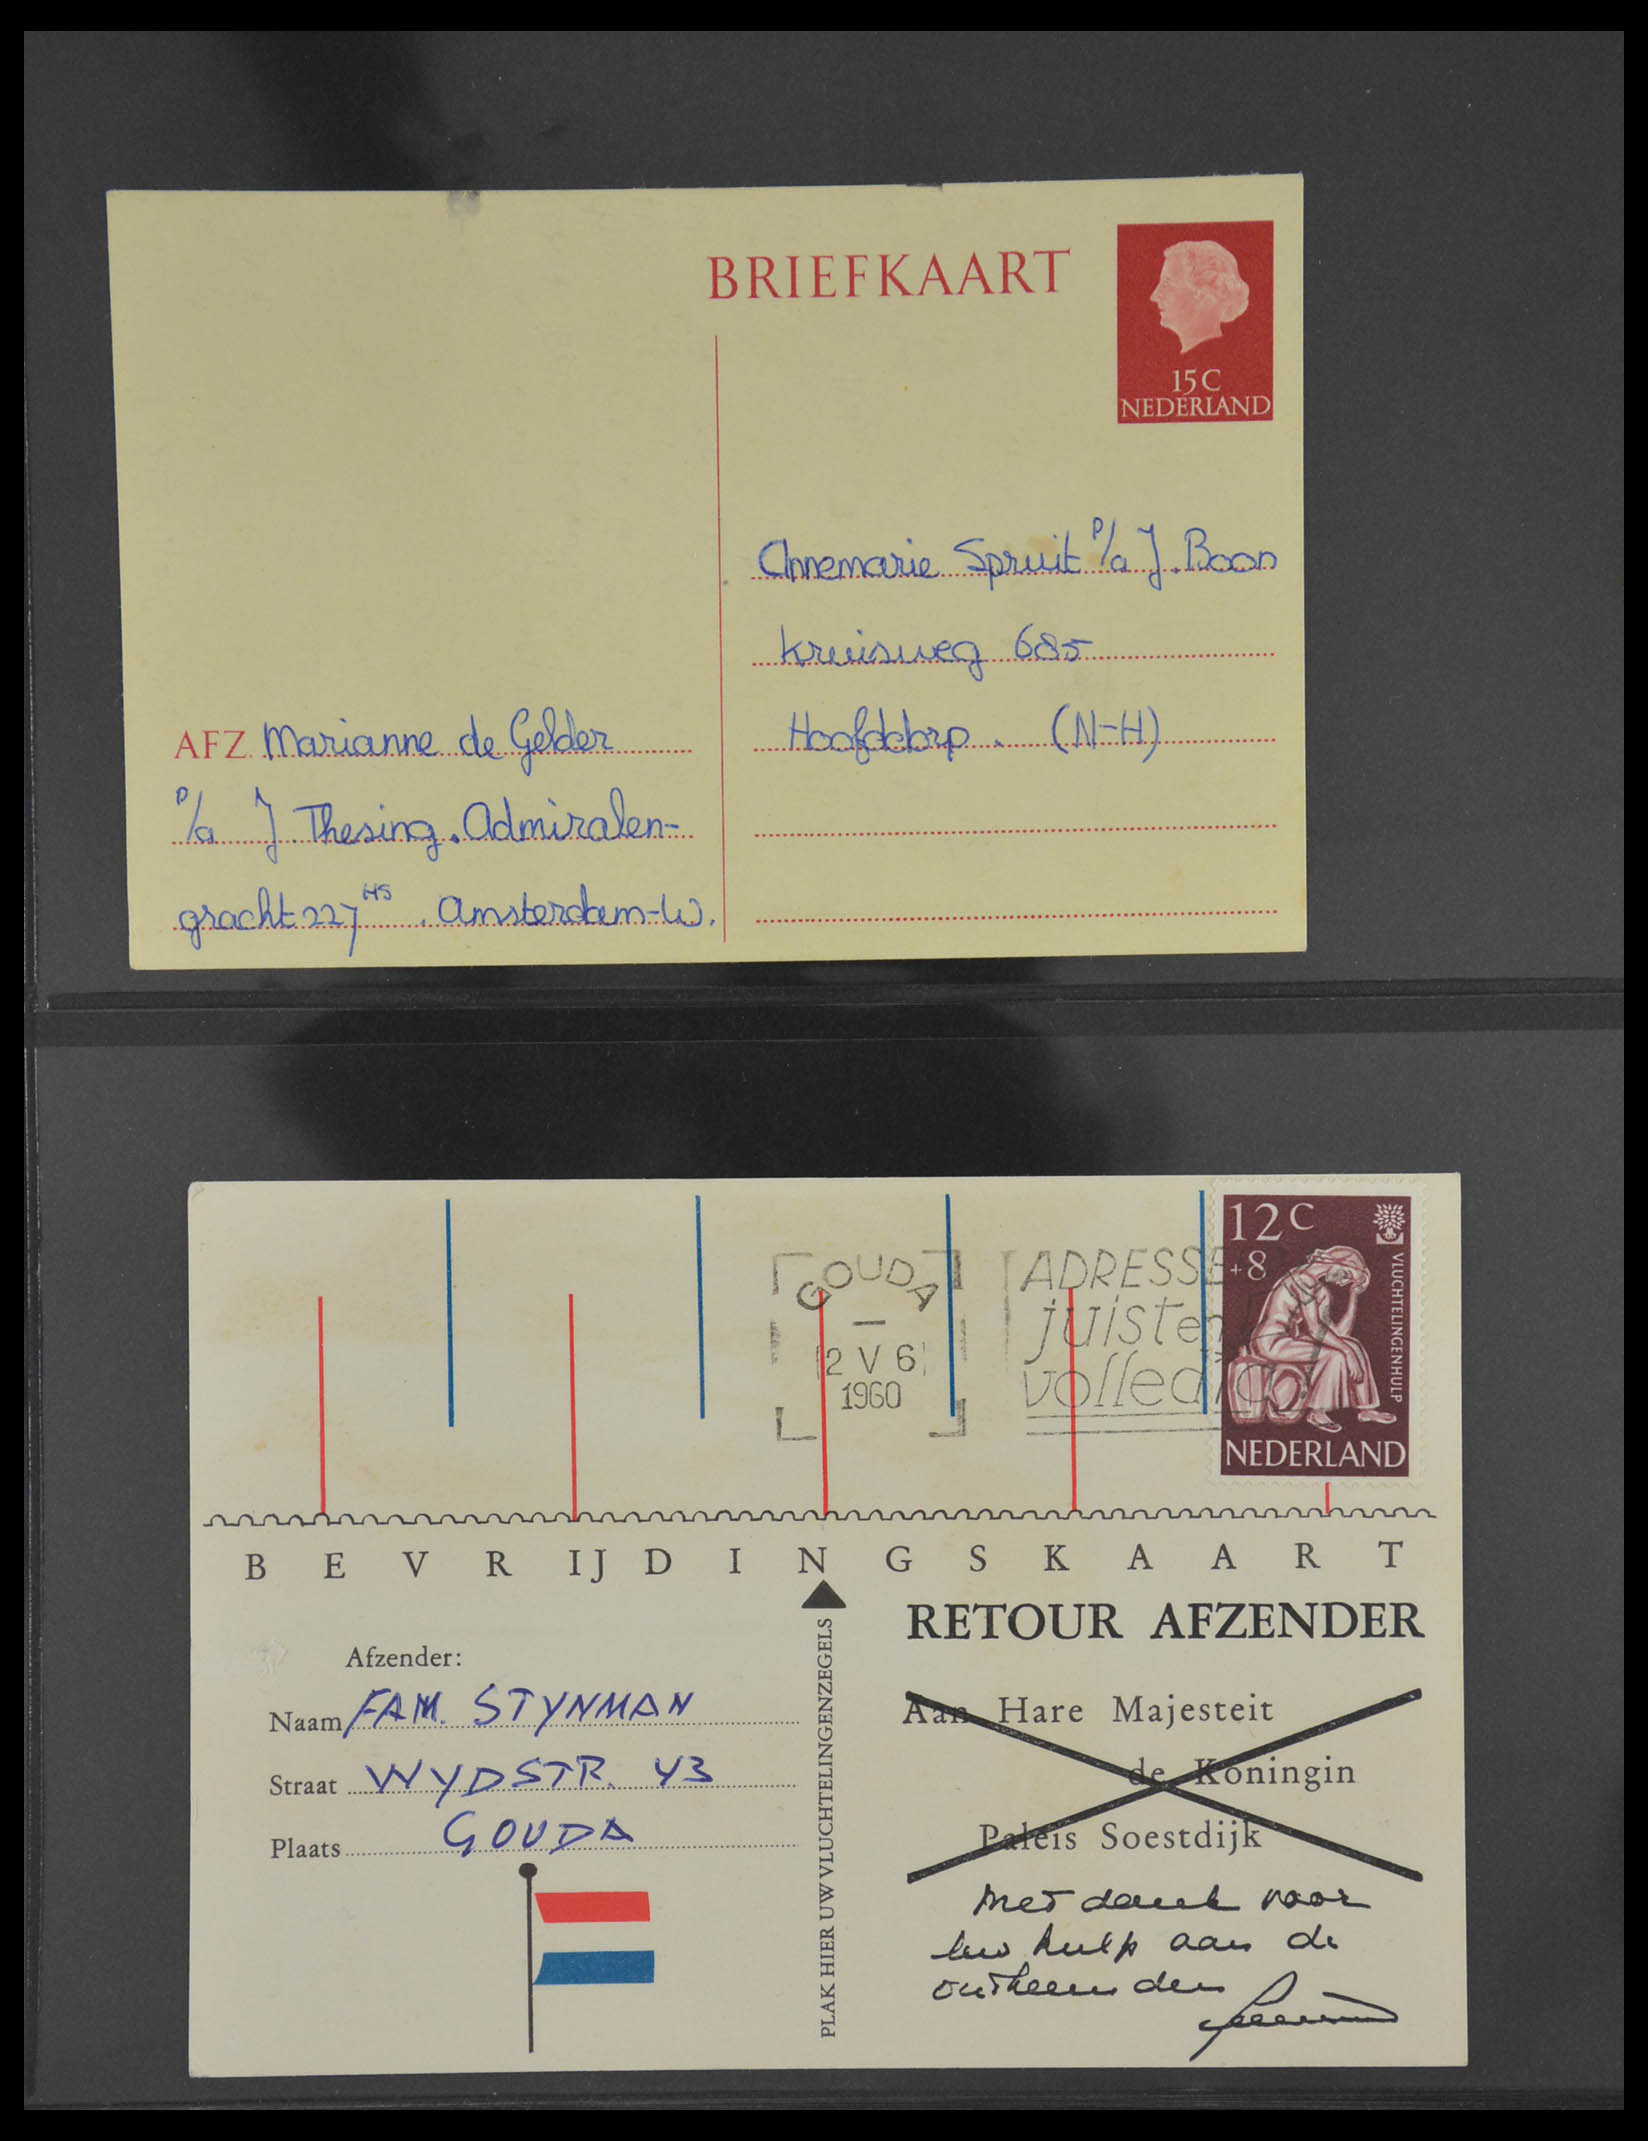 BRIEFKAART
15 C
NEDERLAND
Annemarie Spruit p/a J. Boon
Kruisweg 685
Hoofddorp. (N-H)
AFZ. Marianne de Gelder
p/a J. Thesing. Admiralen-
gracht 227 HS. Amsterdam-W.
GOUDA
12 V 6
1960
ADRESSE
juist en
volledig
12 C
+8
VLUCHTELINGENHULP
NEDERLAND
BEVRIJDINGSKAART
RETOUR AFZENDER
Afzender:
Naam FAM. STYNMAN
Straat WYDSTR. 43
Plaats GOUDA
PLAK HIER UW VLUCHTELINGENZEGELS
Aan Hare Majesteit
de Koningin
Paleis Soestdijk
Met dank voor
uw hulp aan de
ontheemden